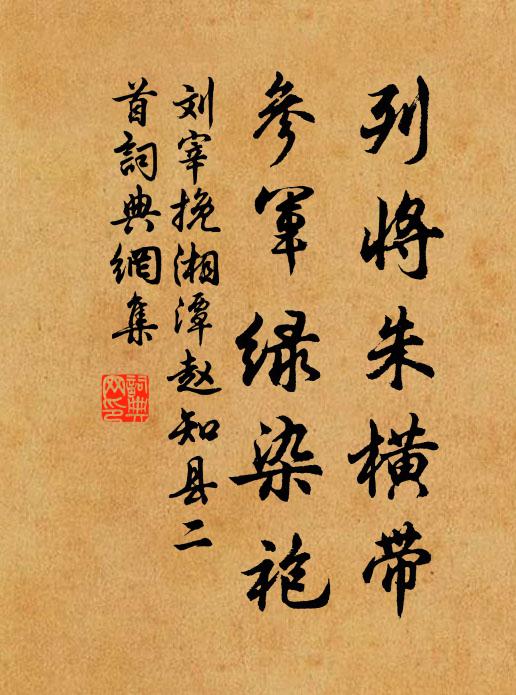 列将朱横带
參軍绿染袍
刘宰挽湘潭赵知县二
首詞典網集
詞典
网印